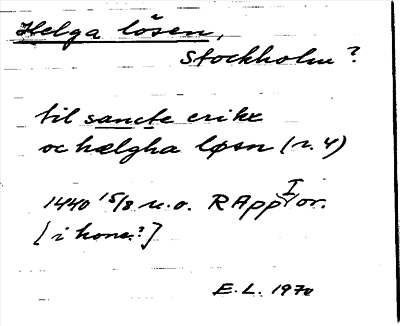 Helga lösen,
Stockholm?
til sancte erikx
oc hælgha løsn (r. 4)
1440 15/8 u.o. RAppI or.
[i hones?]
E.L. 1970